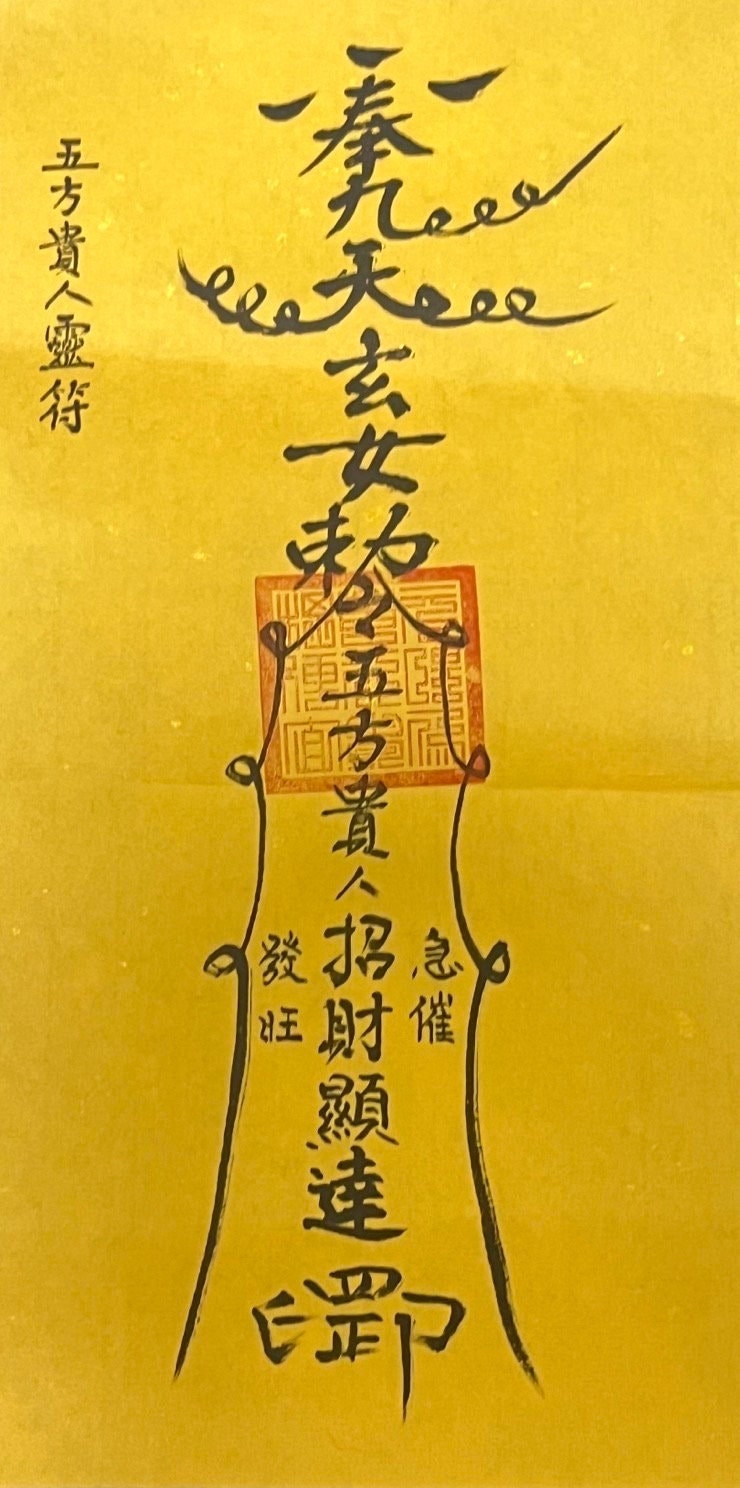 奉九天玄女勅令五方貴人招財顯達
急催
發旺
五方貴人靈符